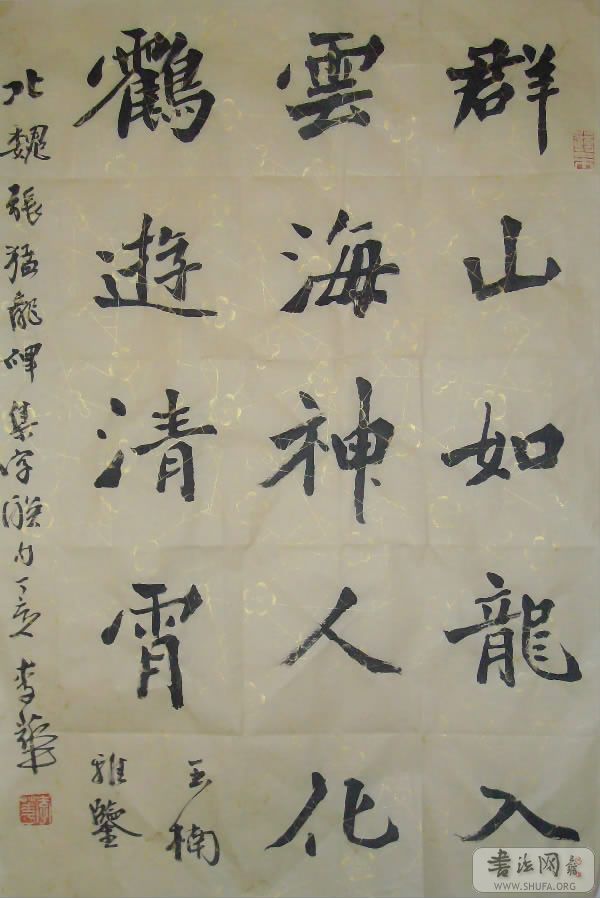 群山如龍入
雲海神人化
鸖遊清霄
玉楠
雅鑒
北魏張猛龍碑集字聯句丁亥李華
書法网
WWW.SHUFA.ORG